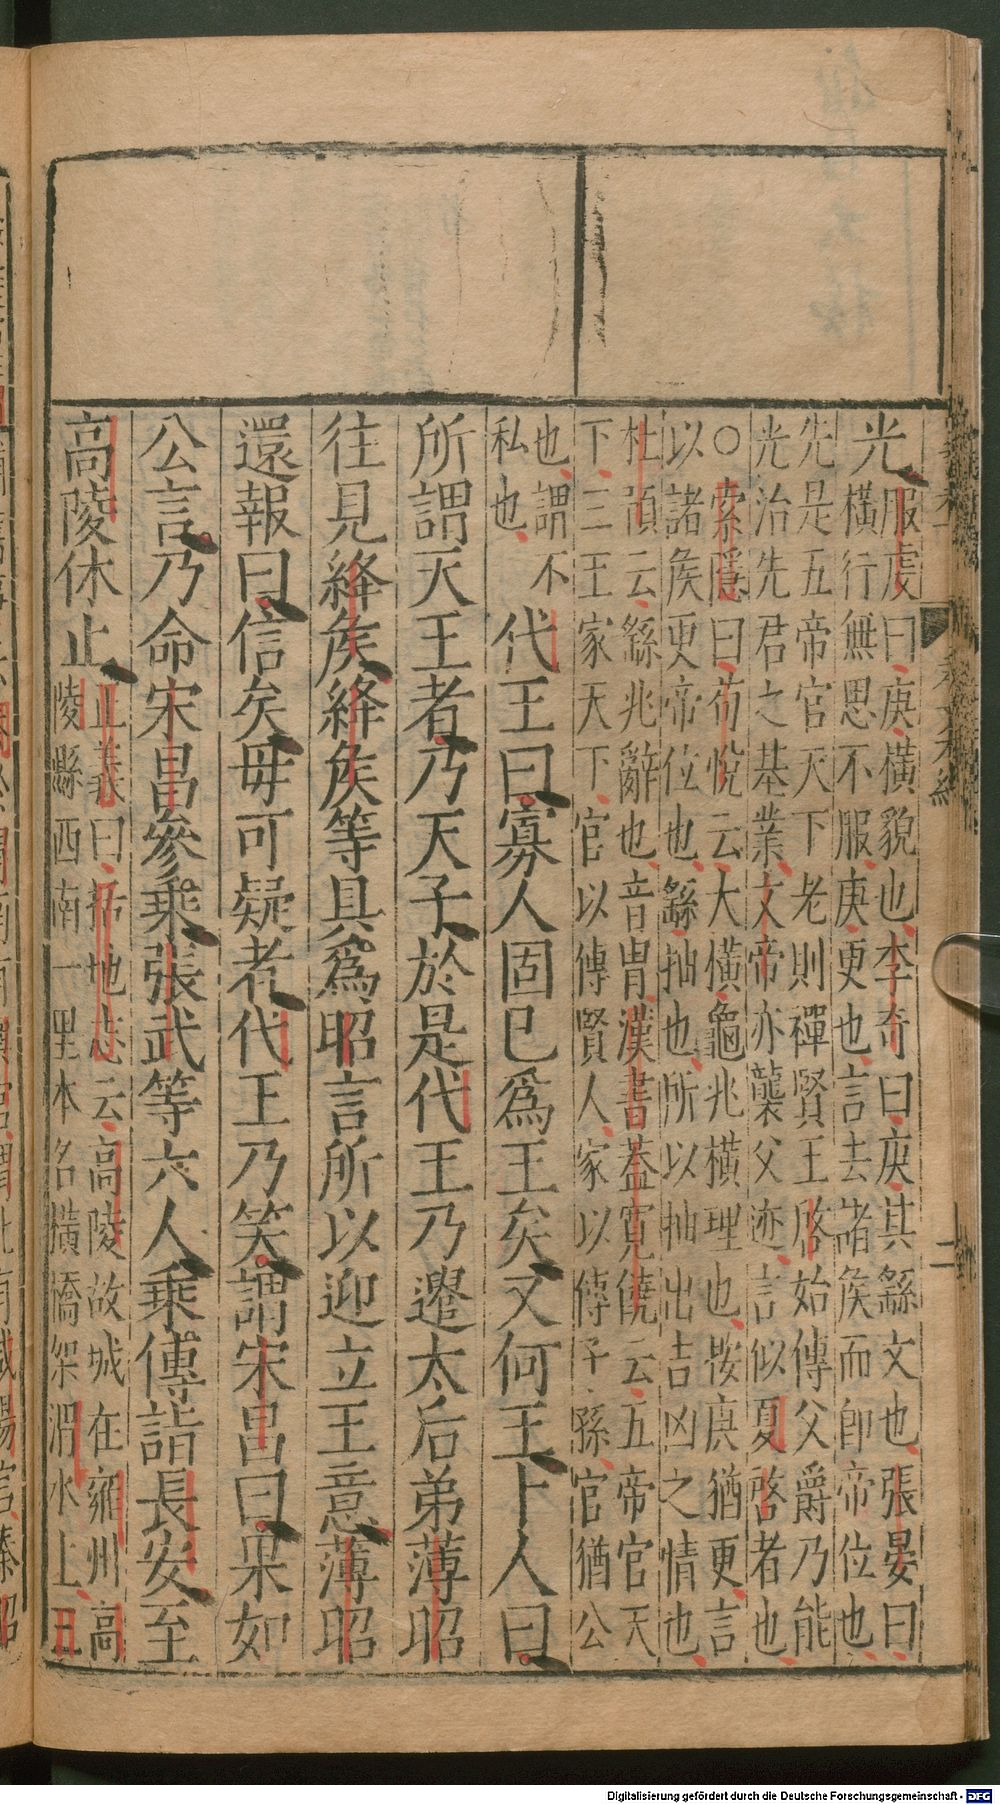 光服虔曰庚橫貌也李奇曰庚其繇文也張晏曰
橫行無思不服庚更也言去諸侯而卽帝位也
先是五帝官天下老則禪賢王啓始傳父爵乃能
光治先君之基業文帝亦襲父迹言似夏啓者也
○索隱曰荀悅云大橫龜兆橫理也按庚猶更言
以諸侯更帝位也繇抽也所以抽出吉凶之情也
杜預云繇兆辭也音胄漢書蓋寬饒云五帝官天
下三王家天下官以傳賢人家以傳子孫官猶公
也謂不
私也
代王曰寡人固已爲王矣又何王卜人曰
所謂天王者乃天子於是代王乃遣太后弟薄昭
往見絳侯絳侯等具爲昭言所以迎立王意薄昭
還報曰信矣毋可疑者代王乃笑謂宋昌曰果如
公言乃命宋昌參乘張武等六人乘傳詣長安至
高陵休止正義曰括地志云高陵故城在雍州高
陵縣西南一里本名橫橋架渭水上丑
二
Digitalisierung gefördert durch die Deutsche Forschungsgemeinschaft - DFG